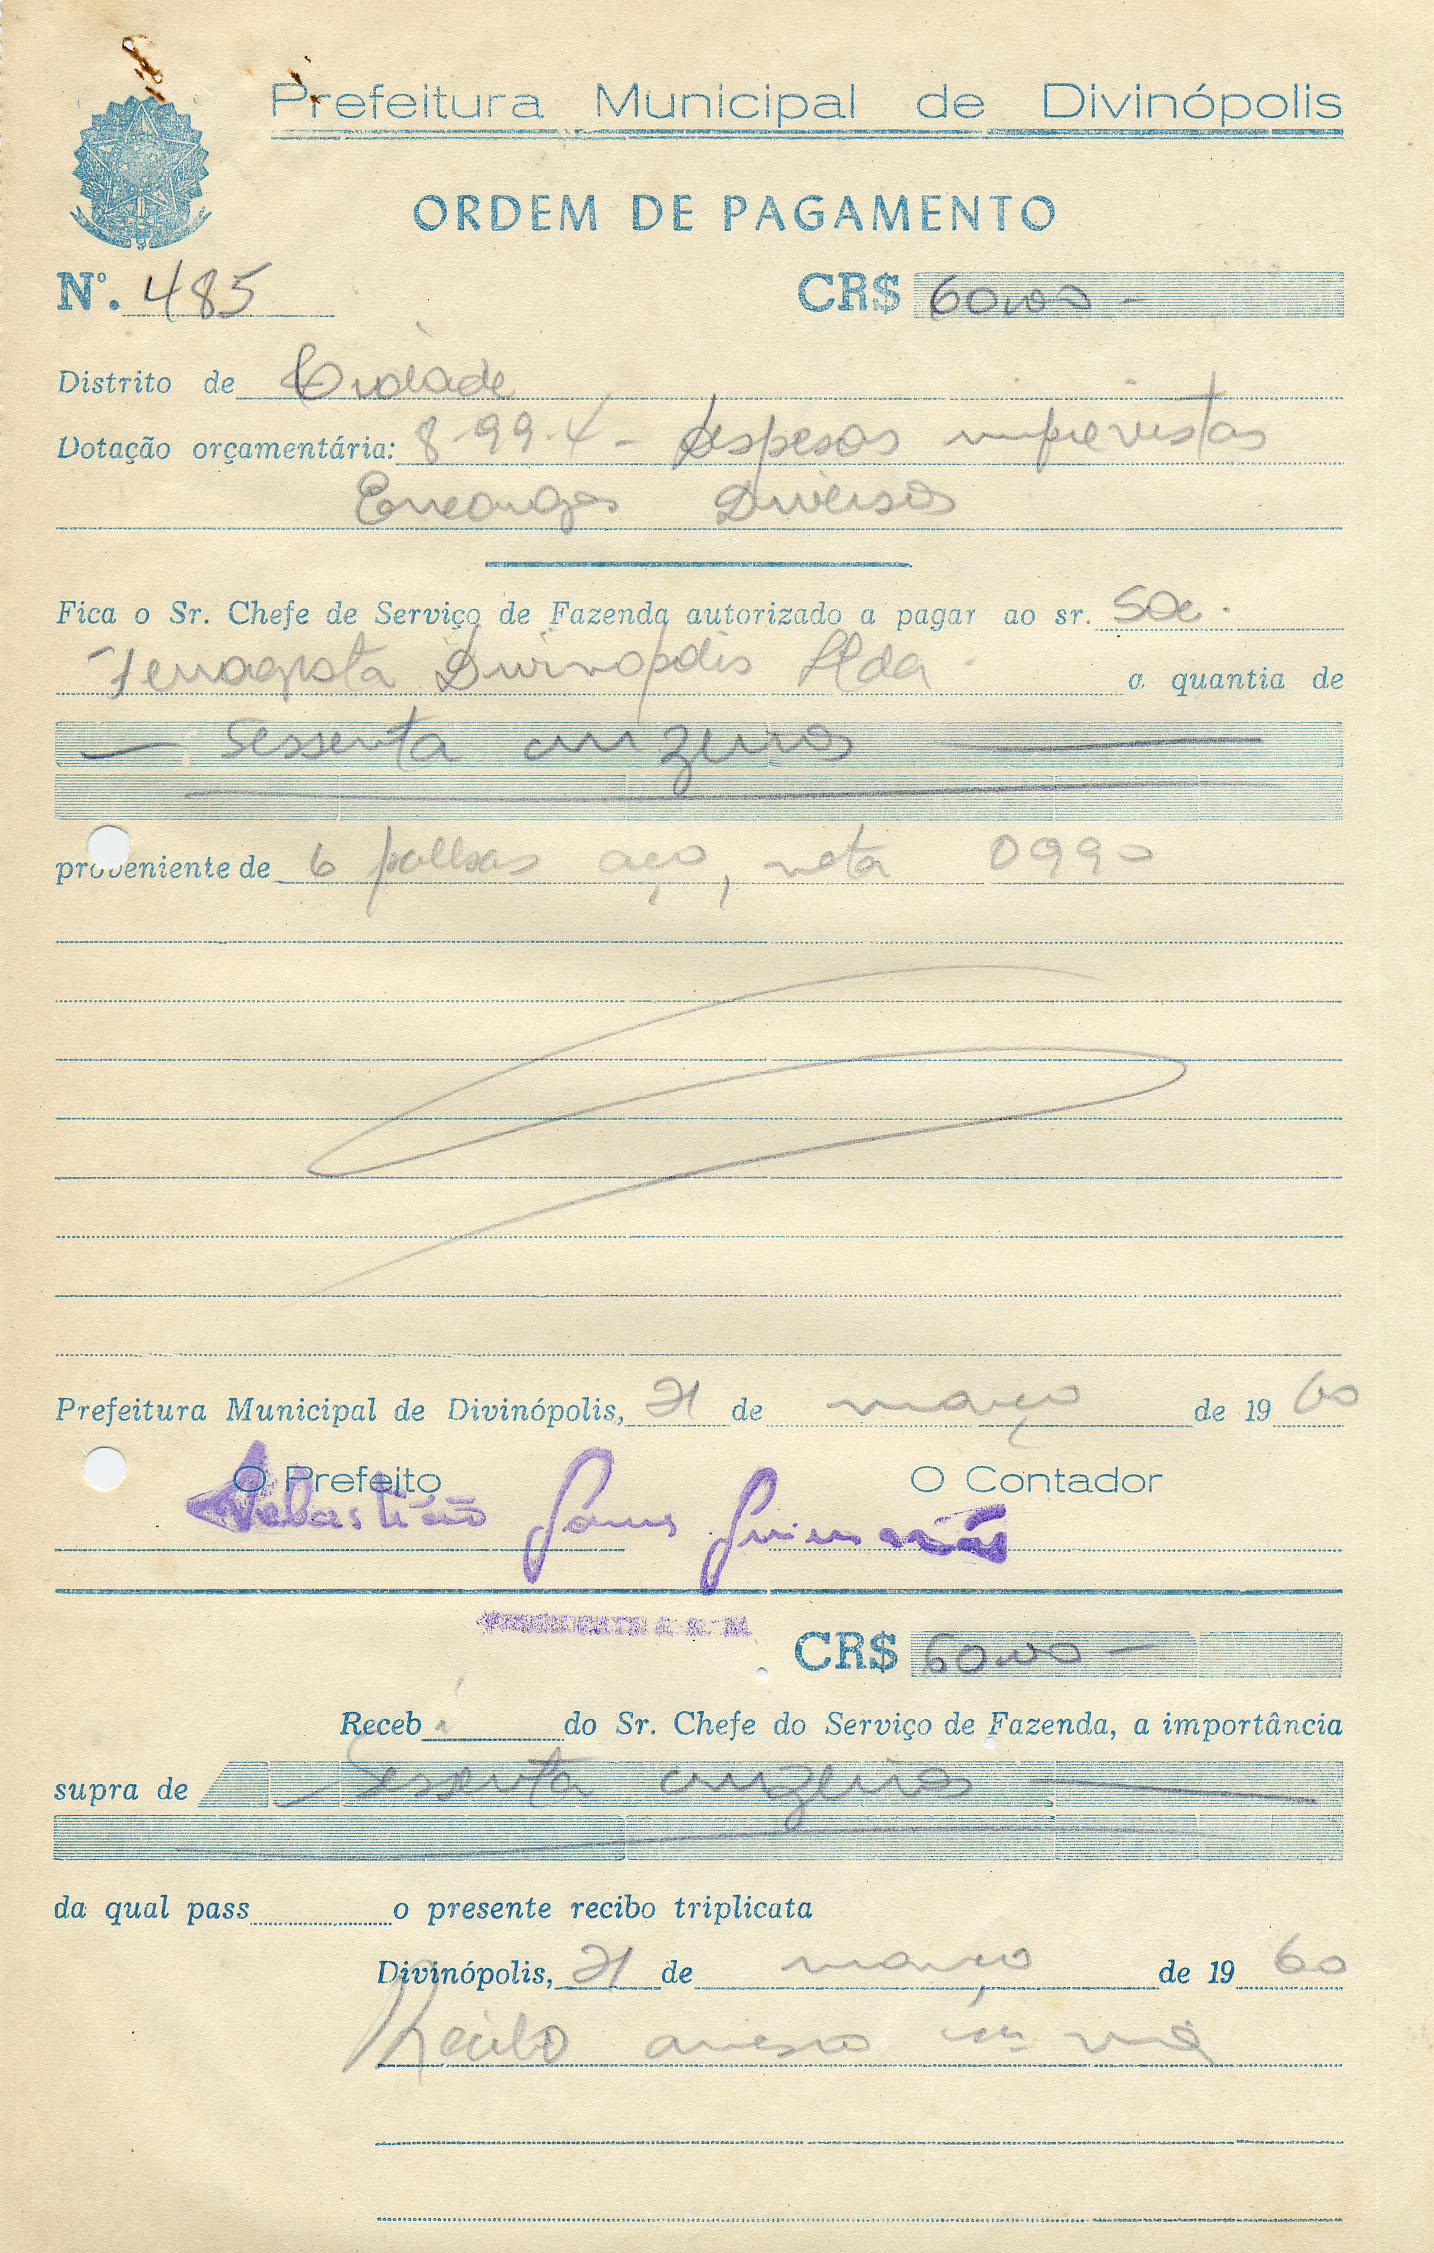 Prefeitura Municipal de Divinópolis
ORDEM DE PAGAMENTO
Nº. 485 CR$ 60,00 -
Distrito de Cidade
Dotação orçamentária: 8-99-4 - Despesas imprevistas
Encargos Diversos
Fica o Sr. Chefe de Serviço de Fazenda autorizado a pagar ao sr. Soc.
Ferragista Divinópolis Ltda. a quantia de
— Sessenta cruzeiros —
proveniente de 6 aço, nota 0990
Prefeitura Municipal de Divinópolis, 21 de março de 1960
O Prefeito O Contador
Sebastião Gomes Guimarães
CR$ 60,00 —
Receb i do Sr. Chefe do Serviço de Fazenda, a importância
supra de — Sessenta cruzeiros —
da qual pass o presente recibo triplicata
Divinópolis, 21 de março de 1960
Recibo anexo 1ª via